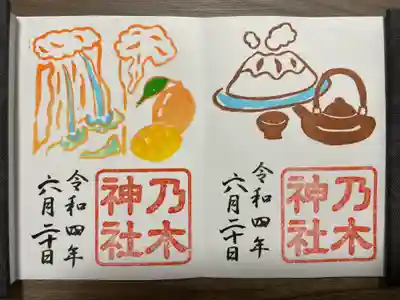 乃木
神社
令和四年
六月二十日
乃木
神社
令和四年
六月二十日